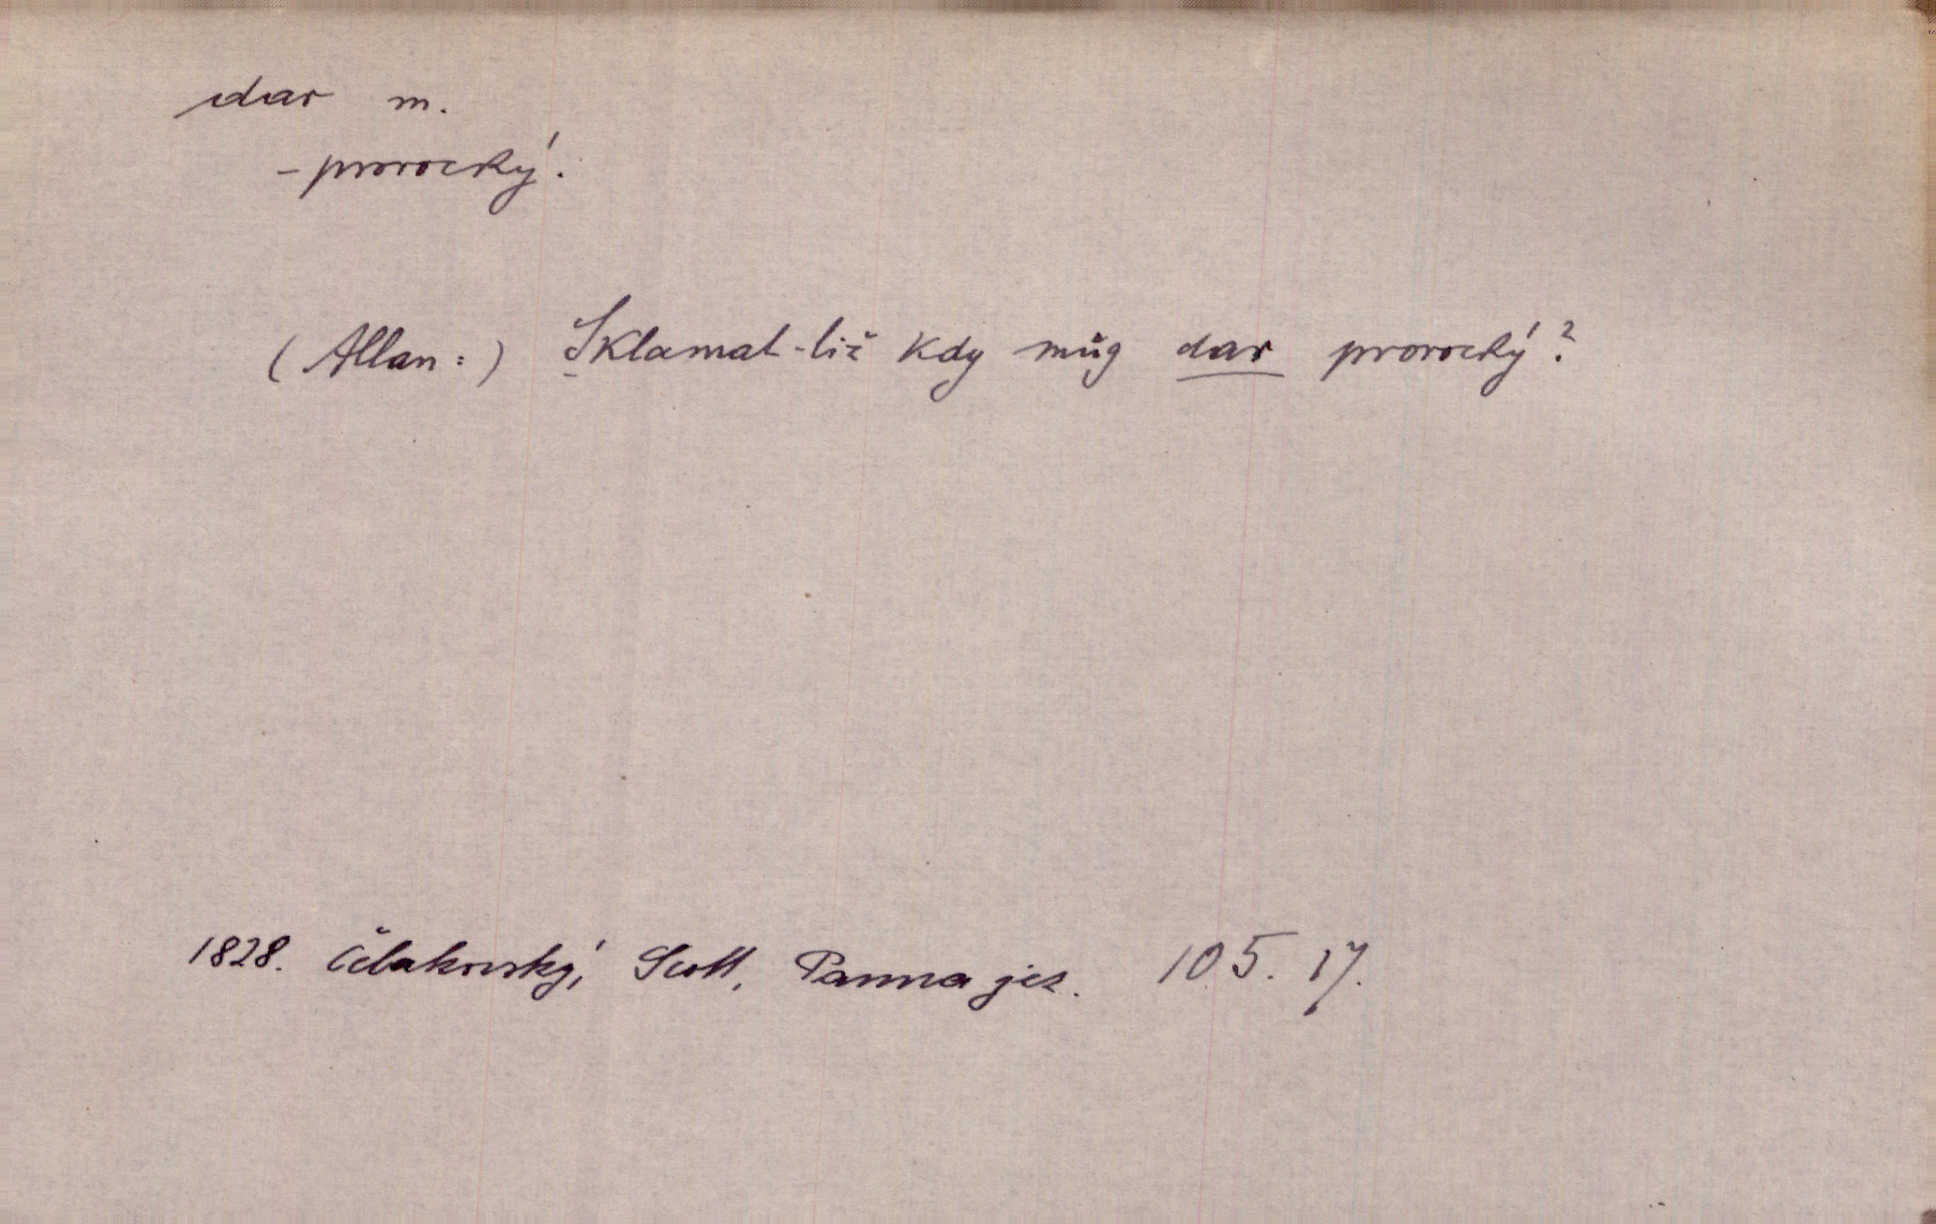 dar m.
- prorocký.
(Allan:) Sklamal-liž kdy můg dar prorocký?
1828. Čelakovský, Scott, Panna jez. 105. 17.